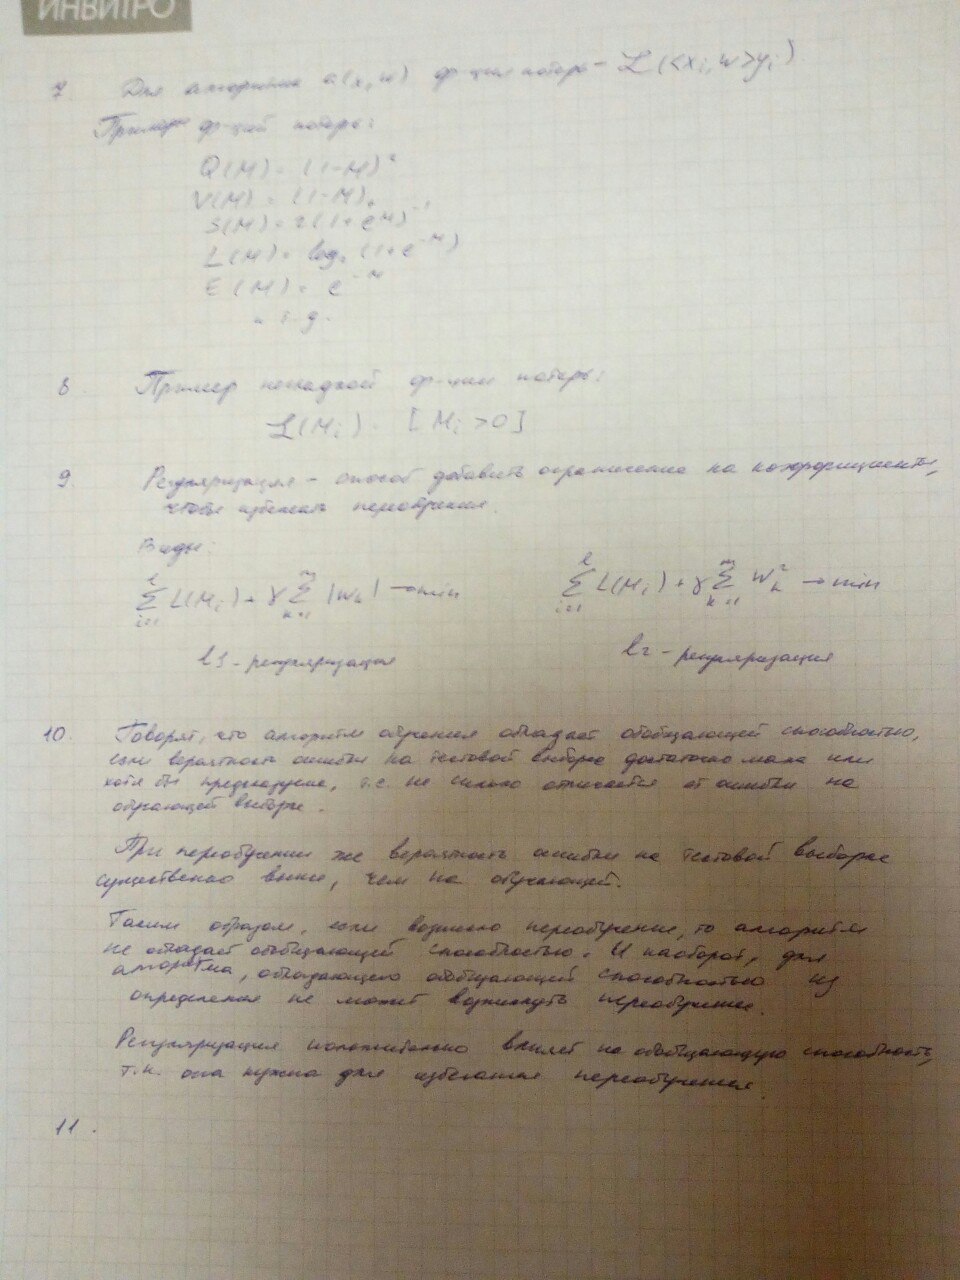 ИНВИТРО
7. Для алгоритма a(x, w) ф-ция потерь - ℒ(<xᵢ, w>yᵢ)
Примеры ф-ций потерь:
Q(M) = (1-M)²
V(M) = (1-M)₊
S(M) = 2(1+eᴹ)⁻¹
L(M) = log₂(1+e⁻ᴹ)
E(M) = e⁻ᴹ
и т.д.
8. Пример негладкой ф-ции потерь:
ℒ(Mᵢ) = [Mᵢ >0]
9. Регуляризация - способ добавить ограничение на коэффициенты,
чтобы избежать переобучения.
Виды:
∑ᵢ₌₁ˡ L(Mᵢ) + γ ∑ₖ₌₁ᵐ |wₖ| → min ∑ᵢ₌₁ˡ L(Mᵢ) + γ ∑ₖ₌₁ᵐ wₖ² → min
l1 - регуляризация l2 - регуляризация
10. Говорят, что алгоритм обучения обладает обобщающей способностью,
если вероятность ошибки на тестовой выборке достаточно мала или
хотя бы предсказуема, т.е. не сильно отличается от ошибки на
обучающей выборке.
При переобучении же вероятность ошибки на тестовой выборке
существенно выше, чем на обучающей.
Таким образом, если возникло переобучение, то алгоритм
не обладает обобщающей способностью. И наоборот, для
алгоритма, обладающего обобщающей способностью из
определения не может возникнуть переобучение.
Регуляризация положительно влияет на обобщающую способность,
т.к. она нужна для избегания переобучения.
11.